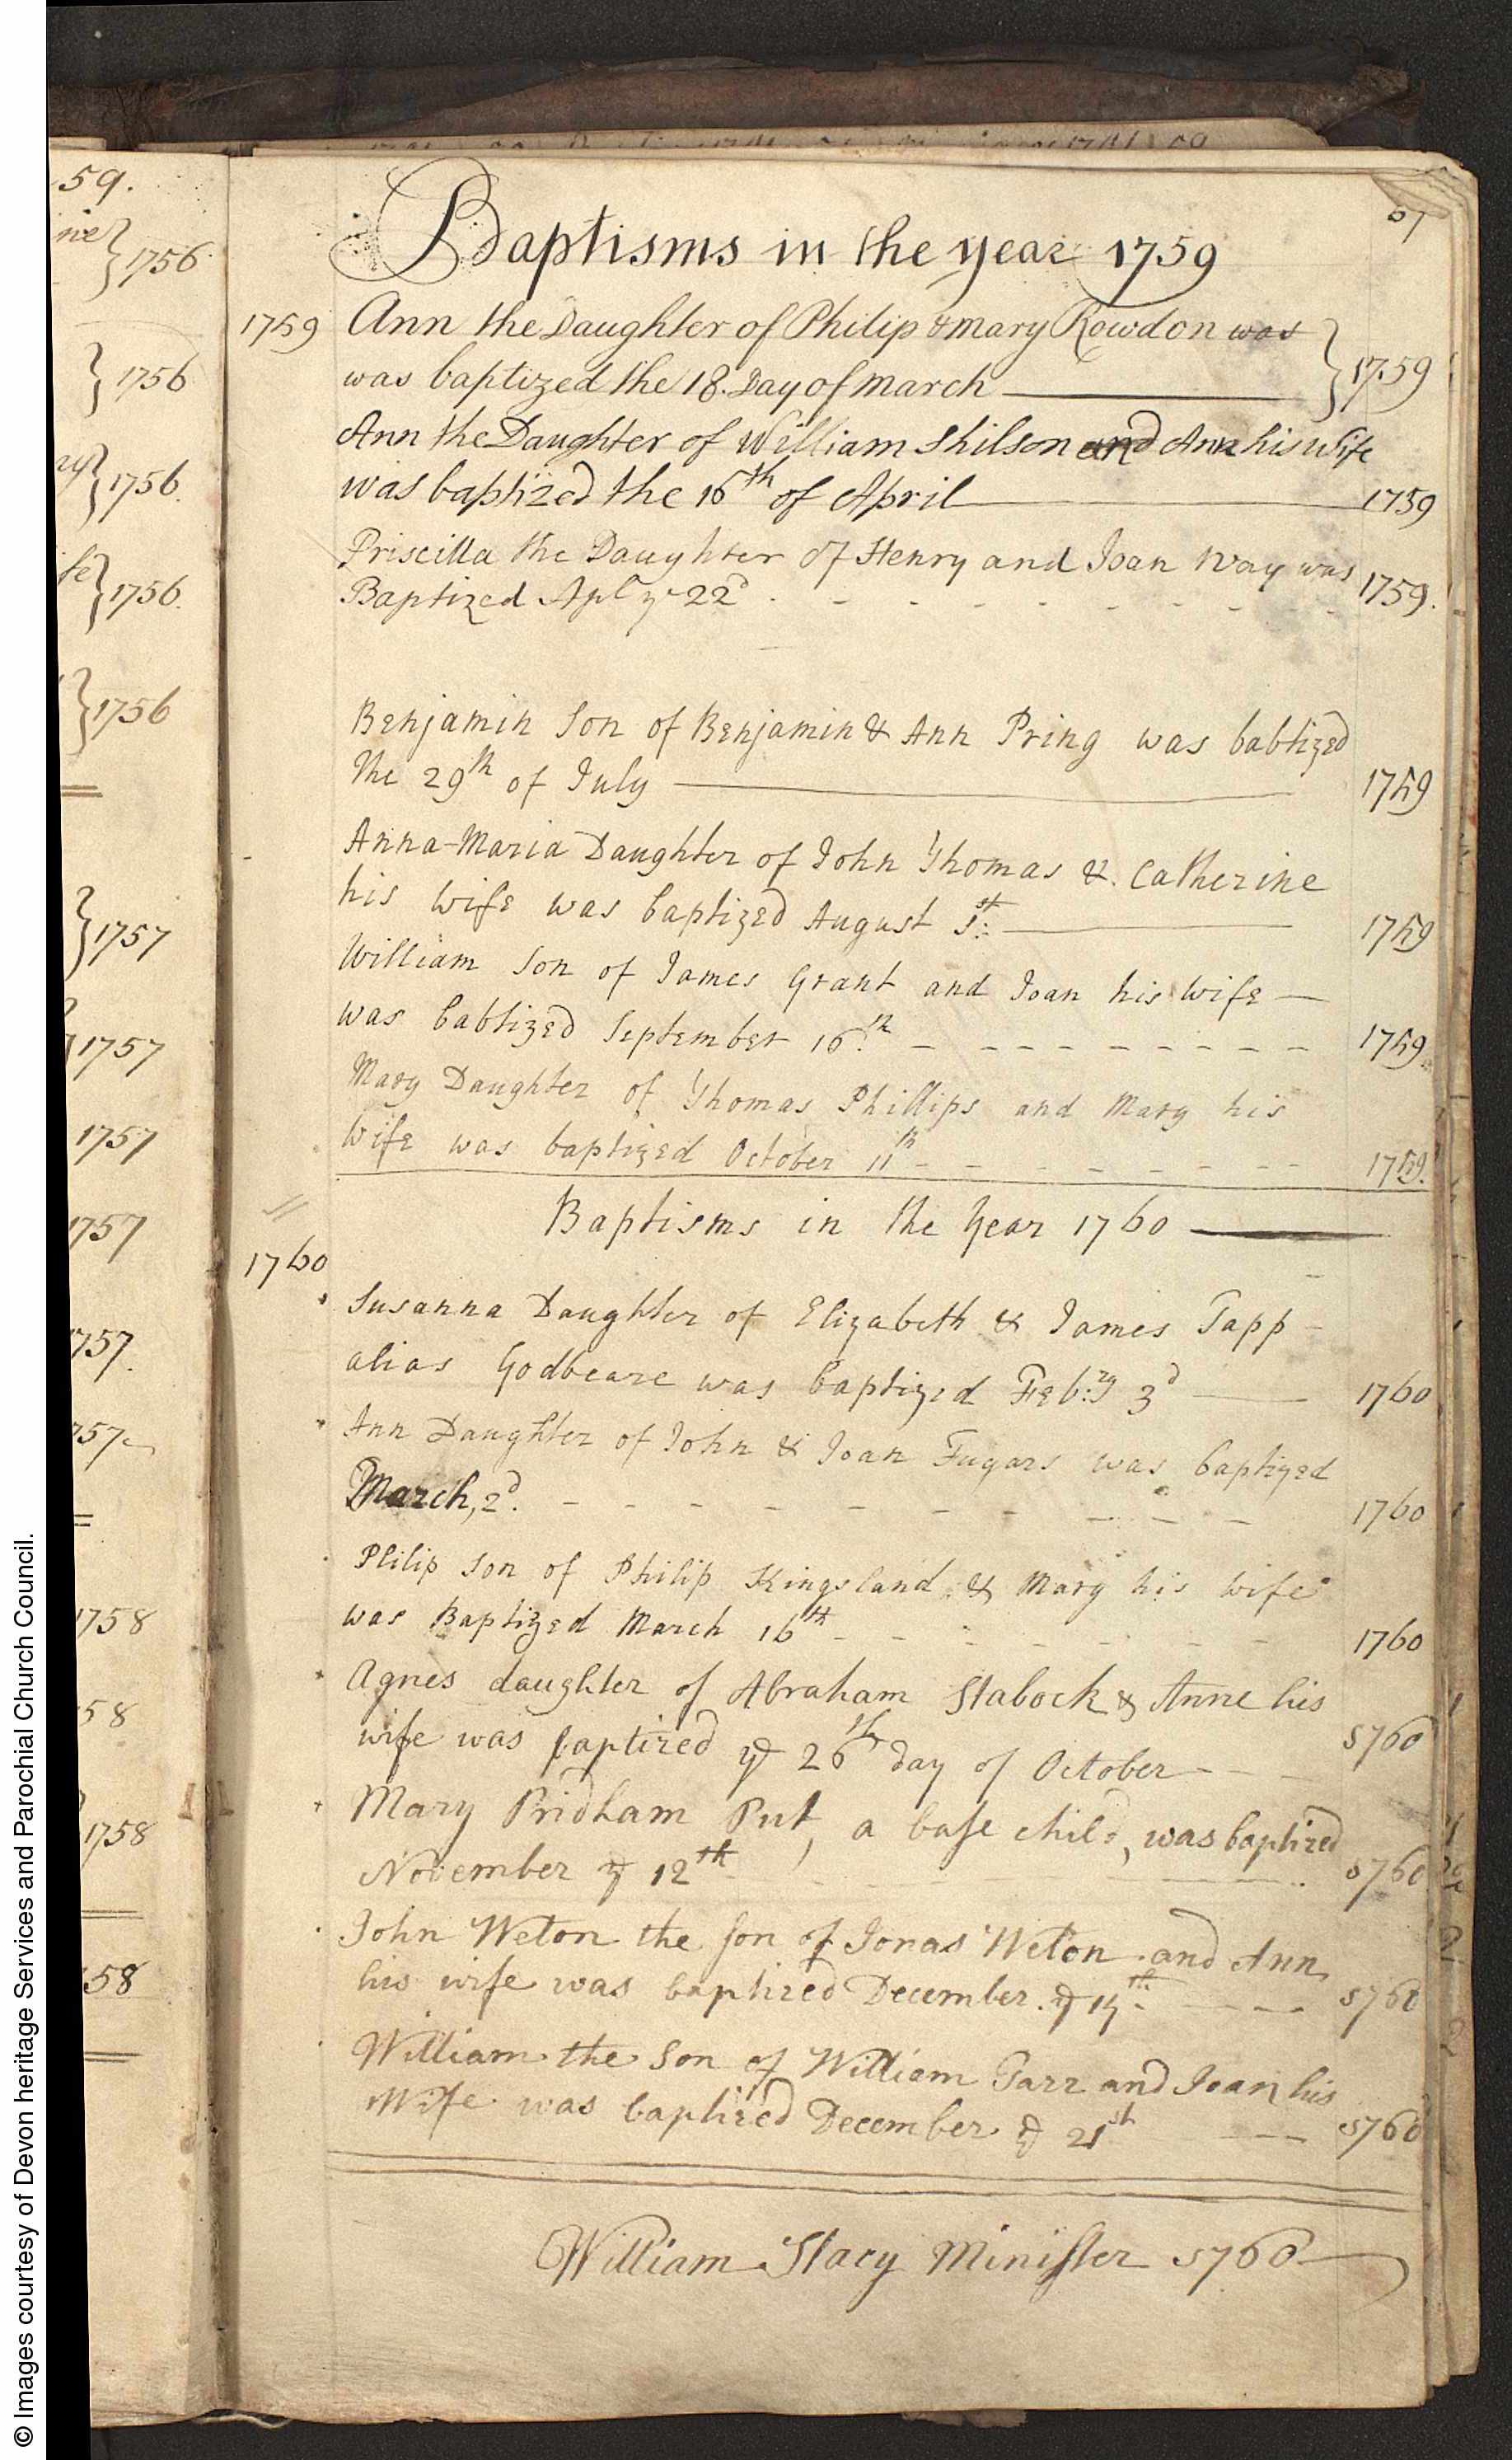 59.
1756
1756
1756.
1756.
1756
1757
1757
1757
1757
1757.
757
1758
58
1758
58
Baptisms in the year 1759
1759 Ann the Daughter of Philip & mary Rowdon was
was baptized the 18. Day of march 1759
Ann the Daughter of William Shilson and Ann his Wife
was baptized the 16th of April 1759
Priscilla the Daughter of Henry and Joan Way was
Baptized Apl ye 22d 1759.
Benjamin Son of Benjamin & Ann Pring was babtized
the 29th of July 1759
Anna-Maria Daughter of John Thomas & Catherine
his wife was baptized August 1st 1759
William Son of James Grant and Joan his wife
was babtized September 16th 1759
Mary Daughter of Thomas Phillips and Mary his
wife was baptized October 11th 1759.
Baptisms in the Year 1760
1760
Susanna Daughter of Elizabeth & James Tapp
alias Godbeare was baptized Feb:ry 3d 1760
Ann Daughter of John & Joan Fugars was baptized
March, 2d. 1760
Philip Son of Philip Kingsland & Mary his wife
was Baptized March 16th 1760
Agnes daughter of Abraham Slabock & Anne his
wife was baptized ye 26th day of October 1760
Mary Pridham Put, a base child, was baptized
November ye 12th 1760
John Weton the son of Jonas Weton and Ann
his wife was baptized December ye 14th 1760
William the Son of William Parr and Joan his
Wife was baptized December ye 21st 1760
William Stacy Minister 1760
© Images courtesy of Devon heritage Services and Parochial Church Council.